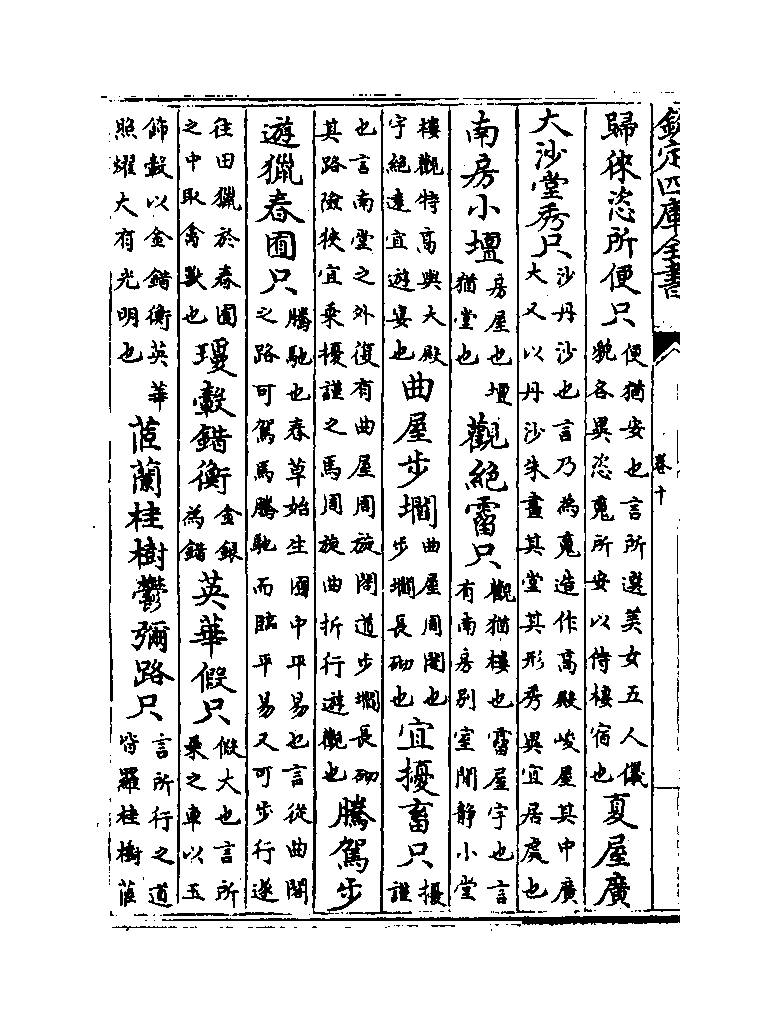 欽定四庫全書
卷十
歸徠恣所便只便猶安也言所選美女五人儀貌各異恣䰟所安以侍棲宿也夏屋廣
大沙堂秀只沙丹沙也言乃為䰟造作高殿峻屋其中廣大又以丹沙朱畫其堂其形秀異宜居處也
南房小壇房屋也壇猶堂也觀絶霤只觀猶樓也霤屋宇也言有南房别室閒靜小堂
樓觀特高與大殿宇絶逺宜遊宴也曲屋步壛曲屋周閣也步壛長砌也宜擾畜只擾謹
也言南堂之外復有曲屋周旋閣道步壛長砌其路險狹宜乘擾謹之馬周旋曲折行遊觀也騰駕步
遊獵春囿只騰馳也春草始生囿中平易也言從曲閣之路可駕馬騰馳而臨平易又可步行遂
往田獵於春囿之中取禽獸也瓊轂錯衡金銀為錯英華假只假大也言所乘之車以玉
飾轂以金錯衡英華照耀大有光明也茝蘭桂樹鬱彌路只言所行之道皆羅桂樹茝